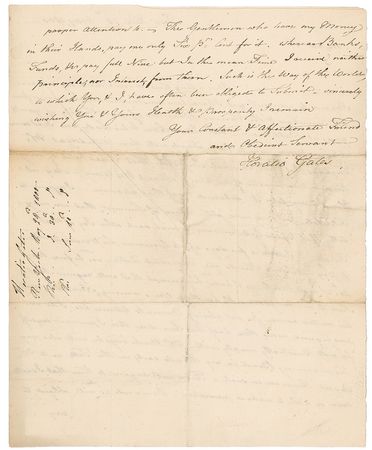 proper Attention to. — The Gentlemen who have my Money
in their Hands, pay me only Six P. Cent for it. whereas Banks,
Funds, &c, pay full Nine. but in the mean Time I receive neither
Principle, nor Interest, from them. Such is the Way of the World,
to which You, & I, have often been obliged to Submit. sincerely
wishing You & Yours Health & Prosperity I remain
Your Constant & Affectionate Friend
and Obedient Servant
Horatio Gates.
Horatio Gates
New York May 20. 1800